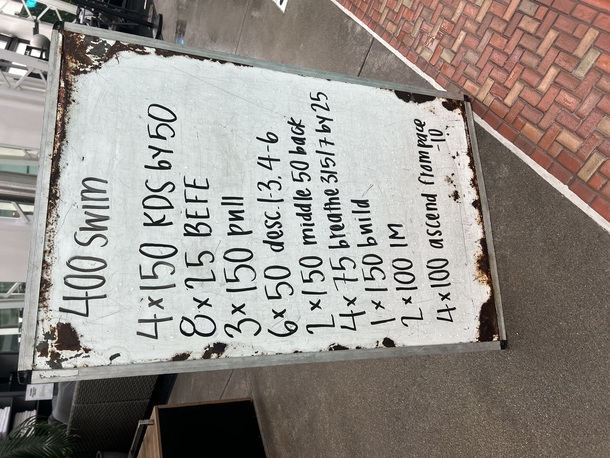 400 SWIM
4x150 KDS by 50
8x25 BEFE
3x150 pull
6x50 desc. 1-3, 4-6
2x150 middle 50 back
4x75 breathe 3/5/7 by 25
1x150 build
2x100 IM
4x100 ascend from pace
-10